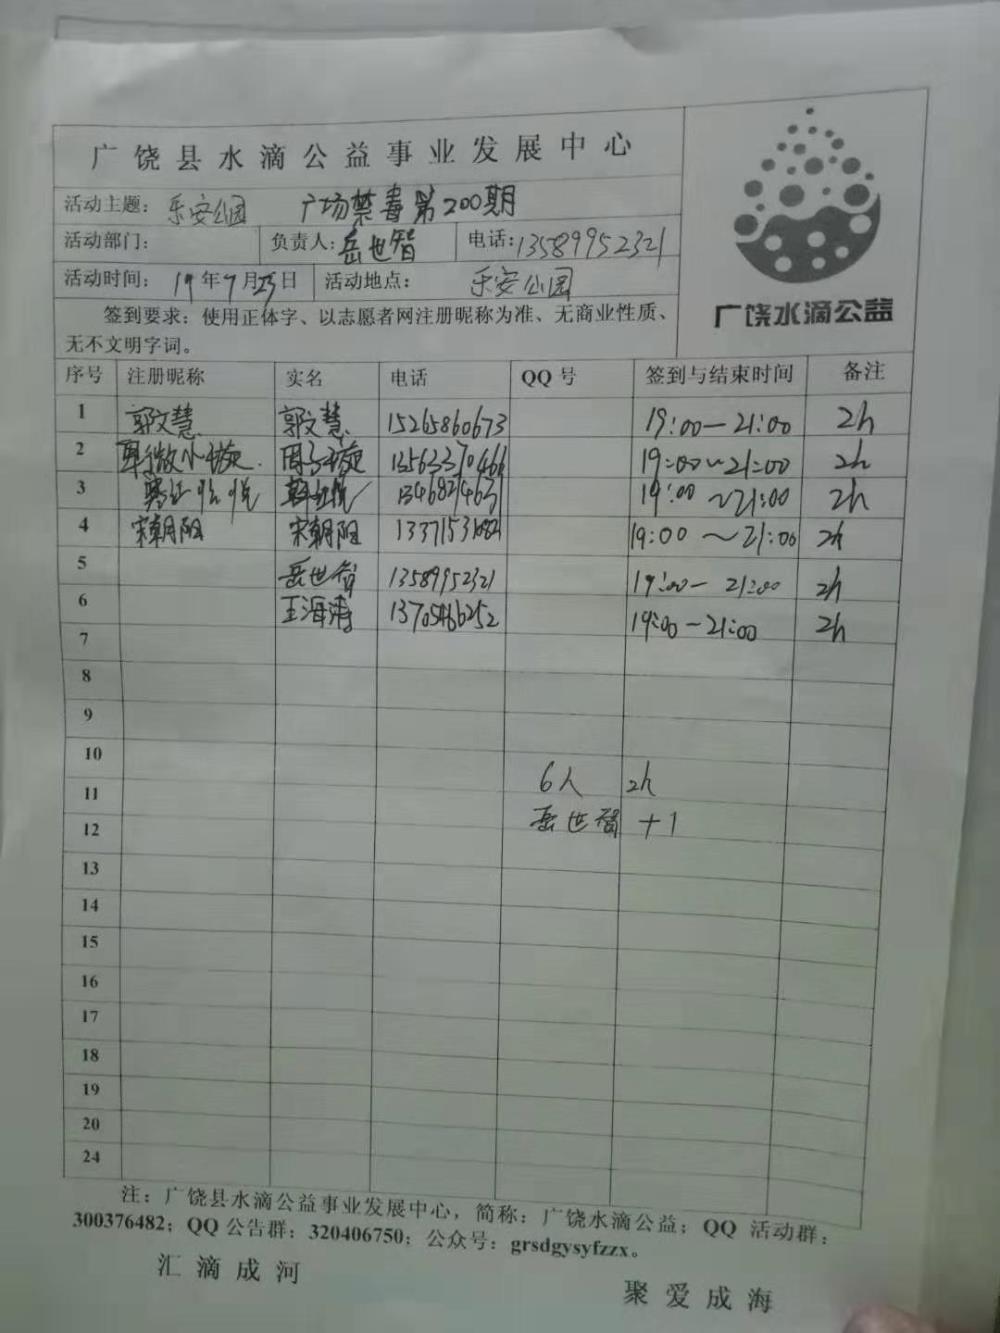 广饶县水滴公益事业发展中心
广饶水滴公益
活动主题：乐安公园 广场禁毒第200期
活动部门： 负责人：岳世智 电话：13589952321
活动时间：19年7月25日 活动地点：乐安公园
签到要求：使用正体字、以志愿者网注册昵称为准、无商业性质、
无不文明字词。
序号 注册昵称 实名 电话 QQ号 签到与结束时间 备注
1 郭文慧 郭文慧 15265860673 19:00—21:00 2h
2 19:00～21:00 2h
3 19:00～21:00 2h
4 宋朝阳 宋朝阳 19:00～21:00 2h
5 岳世智 13589952321 19:00—21:00 2h
6 王海涛 13705466252 19:00—21:00 2h
7
8
9
10
11 6人 2h
12 岳世智 +1
13
14
15
16
17
18
19
20
24
注：广饶县水滴公益事业发展中心，简称：广饶水滴公益；QQ 活动群：
300376482；QQ 公告群：320406750；公众号：grsdgysyfzzx。
汇滴成河
聚爱成海